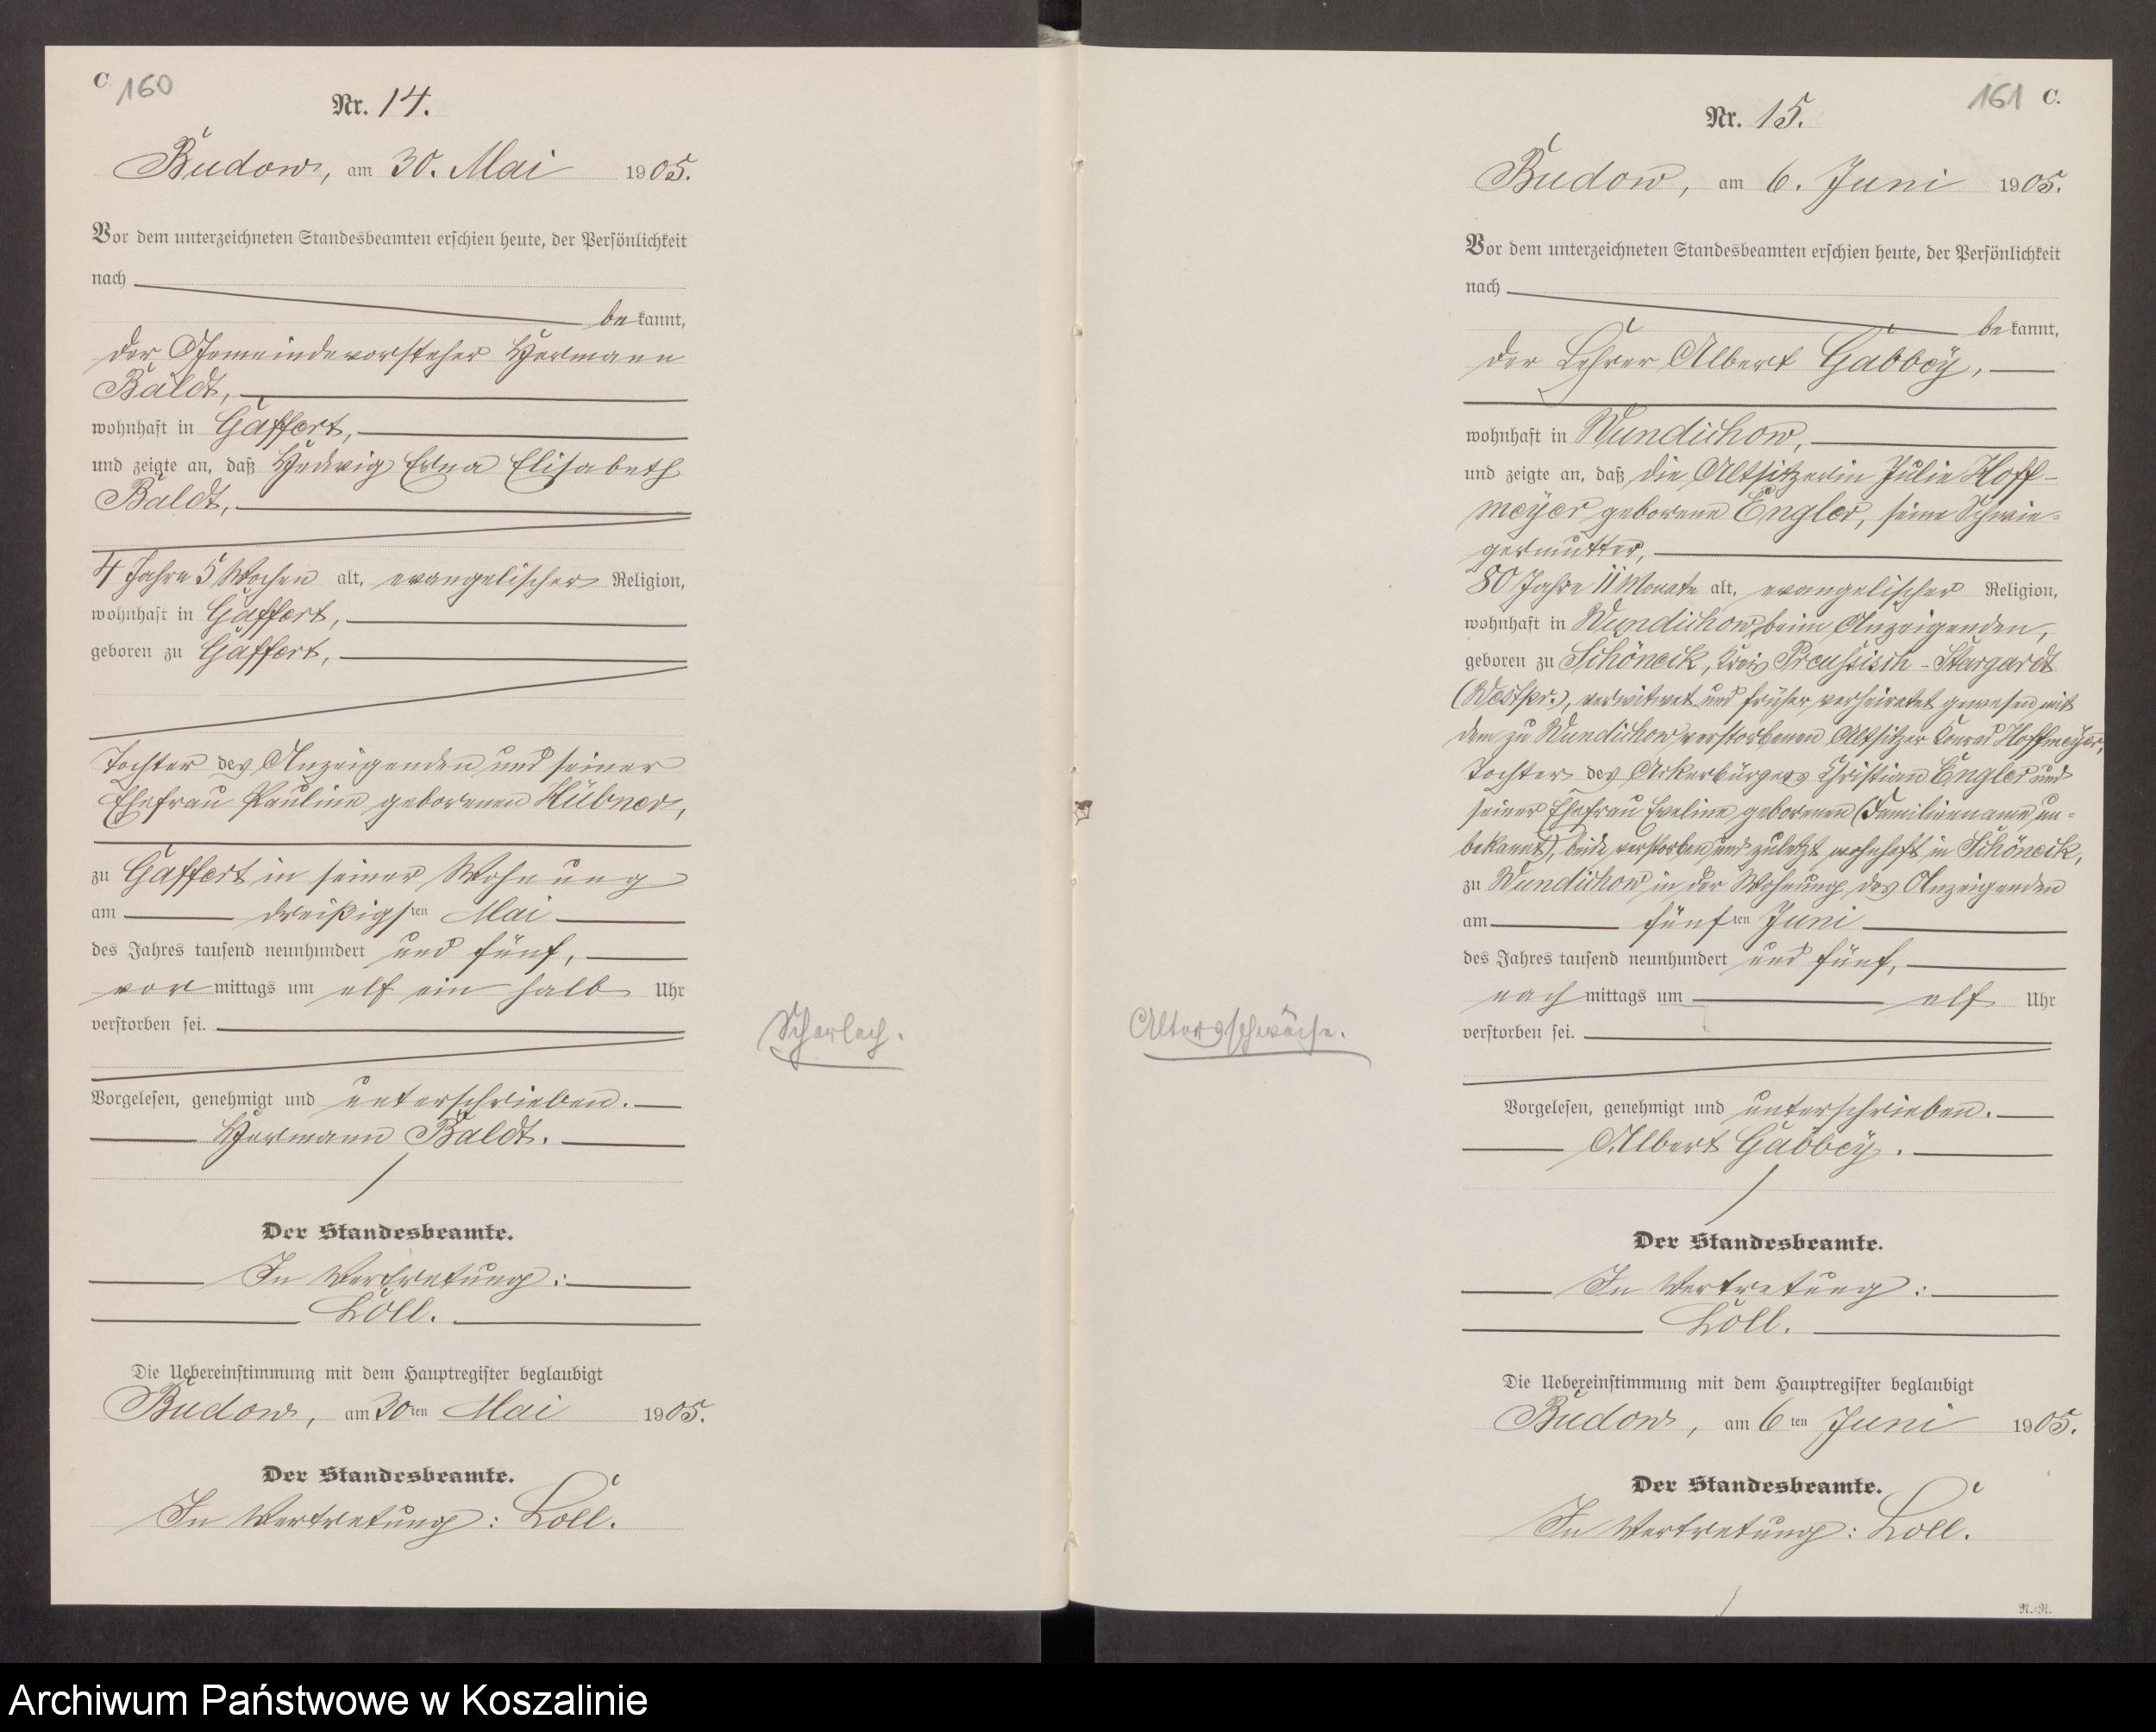 C 160
Nr. 14.
Budow, am 30. Mai 1905.
Vor dem unterzeichneten Standesbeamten erschien heute, der Persönlichkeit
nach
bekannt,
der Gemeindevorsteher Hermann
Baldt,
wohnhaft in Gaffert,
und zeigte an, daß Hedwig Erna Elisabeth
Baldt,
4 Jahre 5 Wochen alt, evangelischer Religion,
wohnhaft in Gaffert,
geboren zu Gaffert,
Tochter des Anzeigenden und seiner
Ehefrau Pauline geborenen Hübner,
zu Gaffert in seiner Wohnung
am dreißigsten Mai
des Jahres tausend neunhundert und fünf,
vormittags um elf ein halb Uhr
verstorben sei.
Scharlach.
Vorgelesen, genehmigt und unterschrieben.
Hermann Baldt.
Der Standesbeamte.
In Vertretung:
Löll.
Die Uebereinstimmung mit dem Hauptregister beglaubigt
Budow, am 30ten Mai 1905.
Der Standesbeamte.
In Vertretung: Löll.
161 C.
Nr. 15.
Budow, am 6. Juni 1905.
Vor dem unterzeichneten Standesbeamten erschien heute, der Persönlichkeit
nach
bekannt,
der Lehrer Albert Gabbey,
wohnhaft in Wundichow,
und zeigte an, daß die Altsitzerin Julie Hoff-
meyer geborene Engler, seine Schwie-
germutter,
80 Jahre 11 Monate alt, evangelischer Religion,
wohnhaft in Wundichow beim Anzeigenden,
geboren zu Schöneck, Kreis Preussisch-Stargardt
(Westpr.), verwitwet und früher verheiratet gewesen mit
dem zu Wundichow verstorbenen Altsitzer Konrad Hoffmeyer,
Tochter des Ackerbürgers Christian Engler und
seiner Ehefrau Eveline geborenen (Familienname un-
bekannt), beide verstorben und zuletzt wohnhaft in Schöneck,
zu Wundichow in der Wohnung des Anzeigenden
am fünften Juni
des Jahres tausend neunhundert und fünf,
nachmittags um elf Uhr
verstorben sei.
Altersschwäche.
Vorgelesen, genehmigt und unterschrieben.
Albert Gabbey.
Der Standesbeamte.
In Vertretung:
Löll.
Die Uebereinstimmung mit dem Hauptregister beglaubigt
Budow, am 6ten Juni 1905.
Der Standesbeamte.
In Vertretung: Löll.
N.-N.
Archiwum Państwowe w Koszalinie